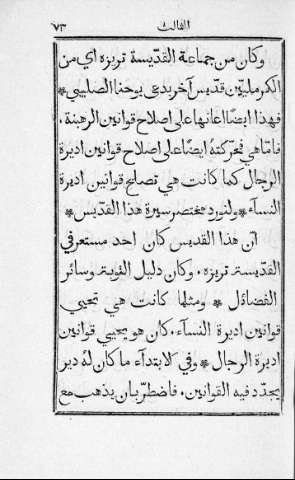 الثالث ٧٣
وكان من جماعة القدّيسة تريزه اي من
الكرمليّين قدّيس آخر يدعى يوحنا الصليبي *
فهذا ايضًا اعانها على اصلاح قوانين الرهبنة.
فامّا هي فحرّكتهُ ايضًا على اصلاح قوانين اديرة
الرجال كما كانت هي تصلح قوانين اديرة
النسآء * ولنورد مختصر سيرة هذا القدّيس *
انّ هذا القديس كان احد مستعرفي
القدّيسة تريزه. وكان دليل التوبة وسائر
الفضائل * ومثلما كانت هي تحيي
قوانين اديرة النسآء. كان هو يحيي قوانين
اديرة الرجال * وفي الابتدآء ما كان لهُ دير
يجدّد فيه القوانين. فاضطرّ بان يذهب مع